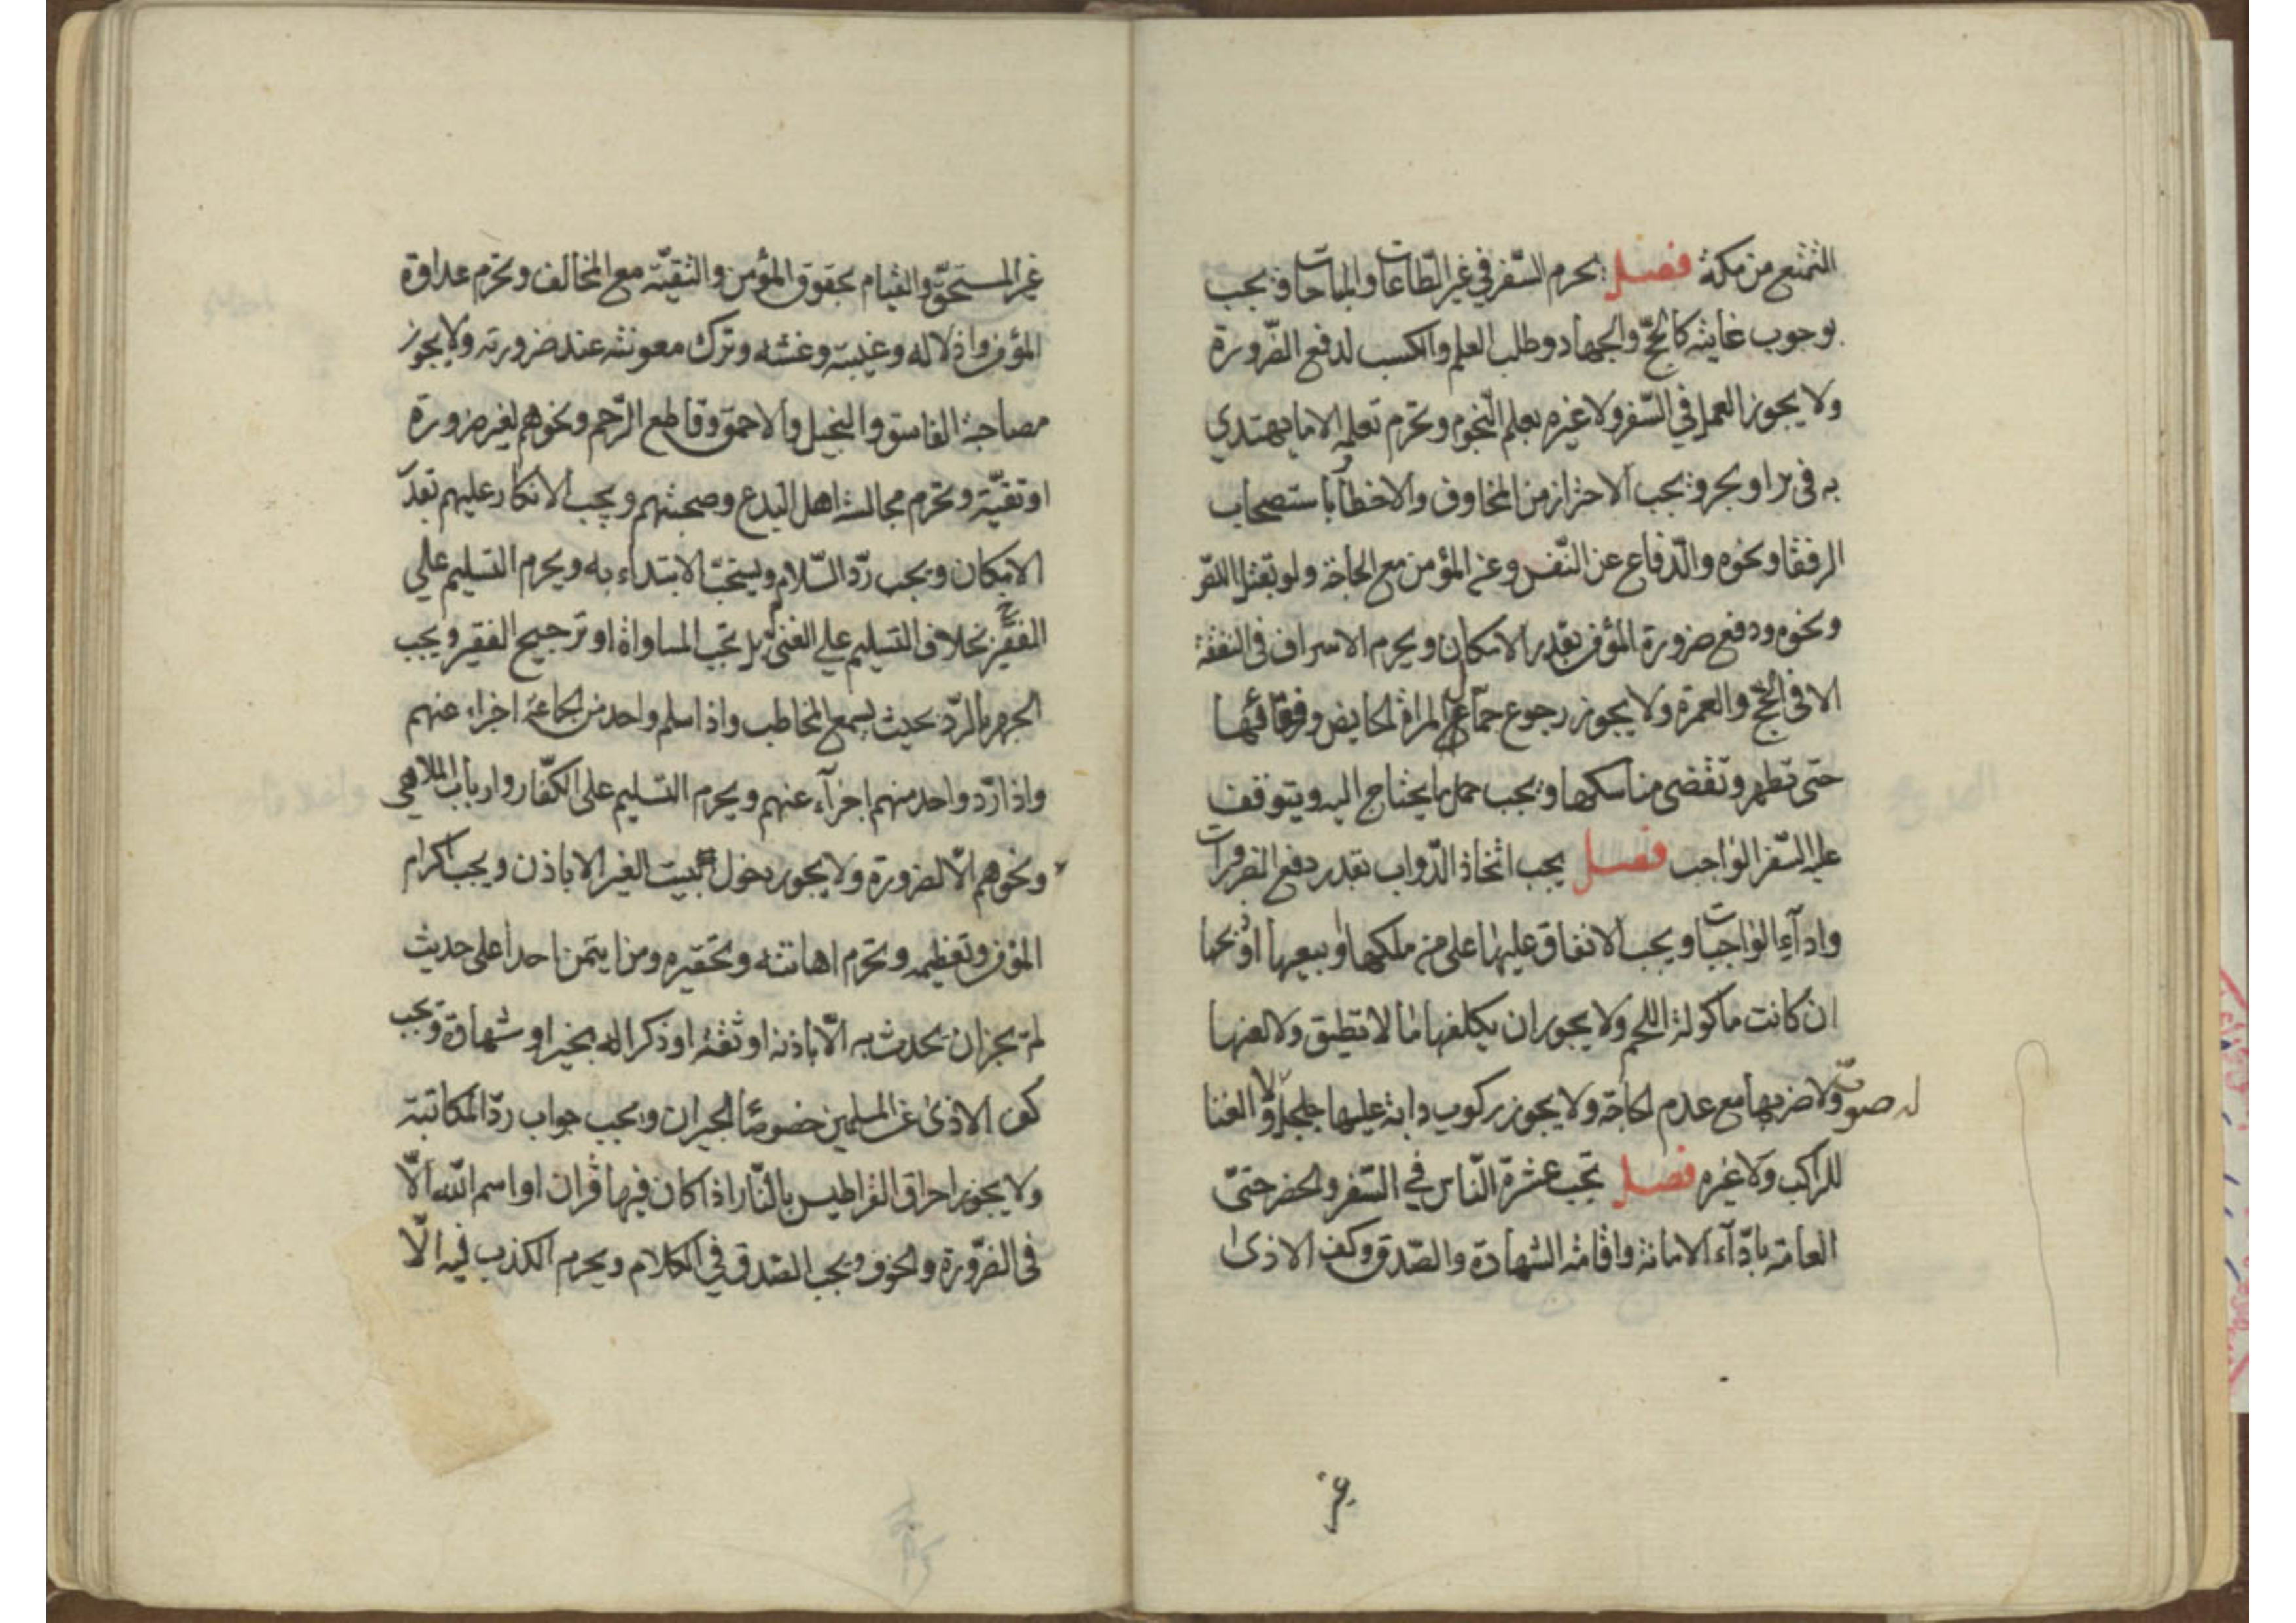 التمتع من مكة فصل يحرم السفر في غير الطاعات والمباحات ويجب
بوجوب غايته كالحج والجهاد وطلب العلم والكسب لدفع الضرورة
ولا يجوز العمل في السفر ولا غيره بعلم النجوم وتحرم تعلمه الا ما يهتدي
به في بر او بحر ويجب الاحتراز من المخاوف والاخطار باستصحاب
الرفقا ونحوه والدفاع عن النفس وعن المؤمن مع الحاجة ولو بقتل اللص
ونحوه ودفع ضرورة المؤمن بقدر الامكان ويحرم الاسراف في النفقة
الا في الحج والعمرة ولا يجوز رجوع جمال المراة الحايض ورفقائها
حتى تطهر وتقضى مناسكها ويجب حمل ما يحتاج اليه ويتوقف
عليه السفر الواجب فصل يجب اتخاذ الدواب بقدر دفع الضرورات
واداء الواجبات ويجب الانفاق عليها على من ملكها او بيعها او نحرها
ان كانت ماكولة اللحم ولا يجوز ان يكلفها ما لا تطيق ولا لعنها
ولا ضربها مع عدم الحاجة ولا يجوز ركوب دابة عليها جلجل له صوت ولا الغنا
للراكب ولا غيره فصل تجب عشرة الناس في السفر والحضر حتى
العامة باداء الامانة واقامة الشهادة والصدق وكف الاذى
غير
غير المستحق والقيام بحقوق المؤمن والتقية مع المخالف وتحرم عداوة
المؤمن واذلاله وغيبته وغشه وترك معونته عند ضرورته ولا يجوز
مصاحبة الفاسق والبخيل والاحمق وقاطع الرحم ونحوهم لغير ضرورة
او تقية وتحرم مجالسة اهل البدع وصحبتهم ويجب الانكار عليهم بقدر
الامكان ويجب رد السلام ويستحب الابتداء به ويحرم التسليم على
الفقير بخلاف التسليم على الغنى بل تجب المساواة او ترجيح الفقير ويجب
الجهر بالرد بحيث يسمع المخاطب واذا سلم واحد من الجماعة اجزاء عنهم
واذا رد واحد منهم اجزآء عنهم ويحرم التسليم على الكفار وارباب الملاهي
ونحوهم الا لضرورة ولا يجوز دخول بيت الغير الا باذن ويجب اكرام
المؤمن وتعظيمه وتحرم اهانته وتحقيره ومن ايتمن احدا على حديث
لم يجز ان يحدث به الا باذنه او ثقة او ذكرا له بخير او شهادة ويجب
كف الاذى عن المسلمين خصوصا الجيران ويجب جواب رد المكاتبة
ولا يجوز احراق القراطيس بالنار اذا كان فيها قران او اسم الله الا
في الضرورة والخوف ويجب الصدق في الكلام ويحرم الكذب فيه الا